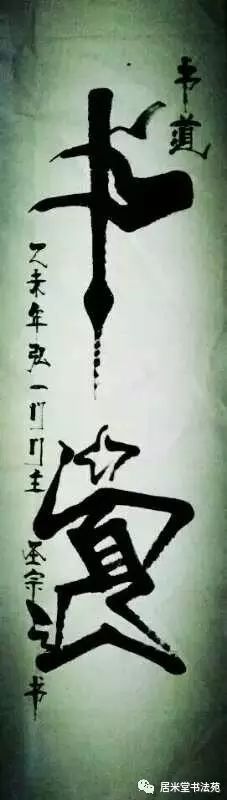 书道
书道
乙未年弘一门门主
圣宗
书
居米堂书法苑